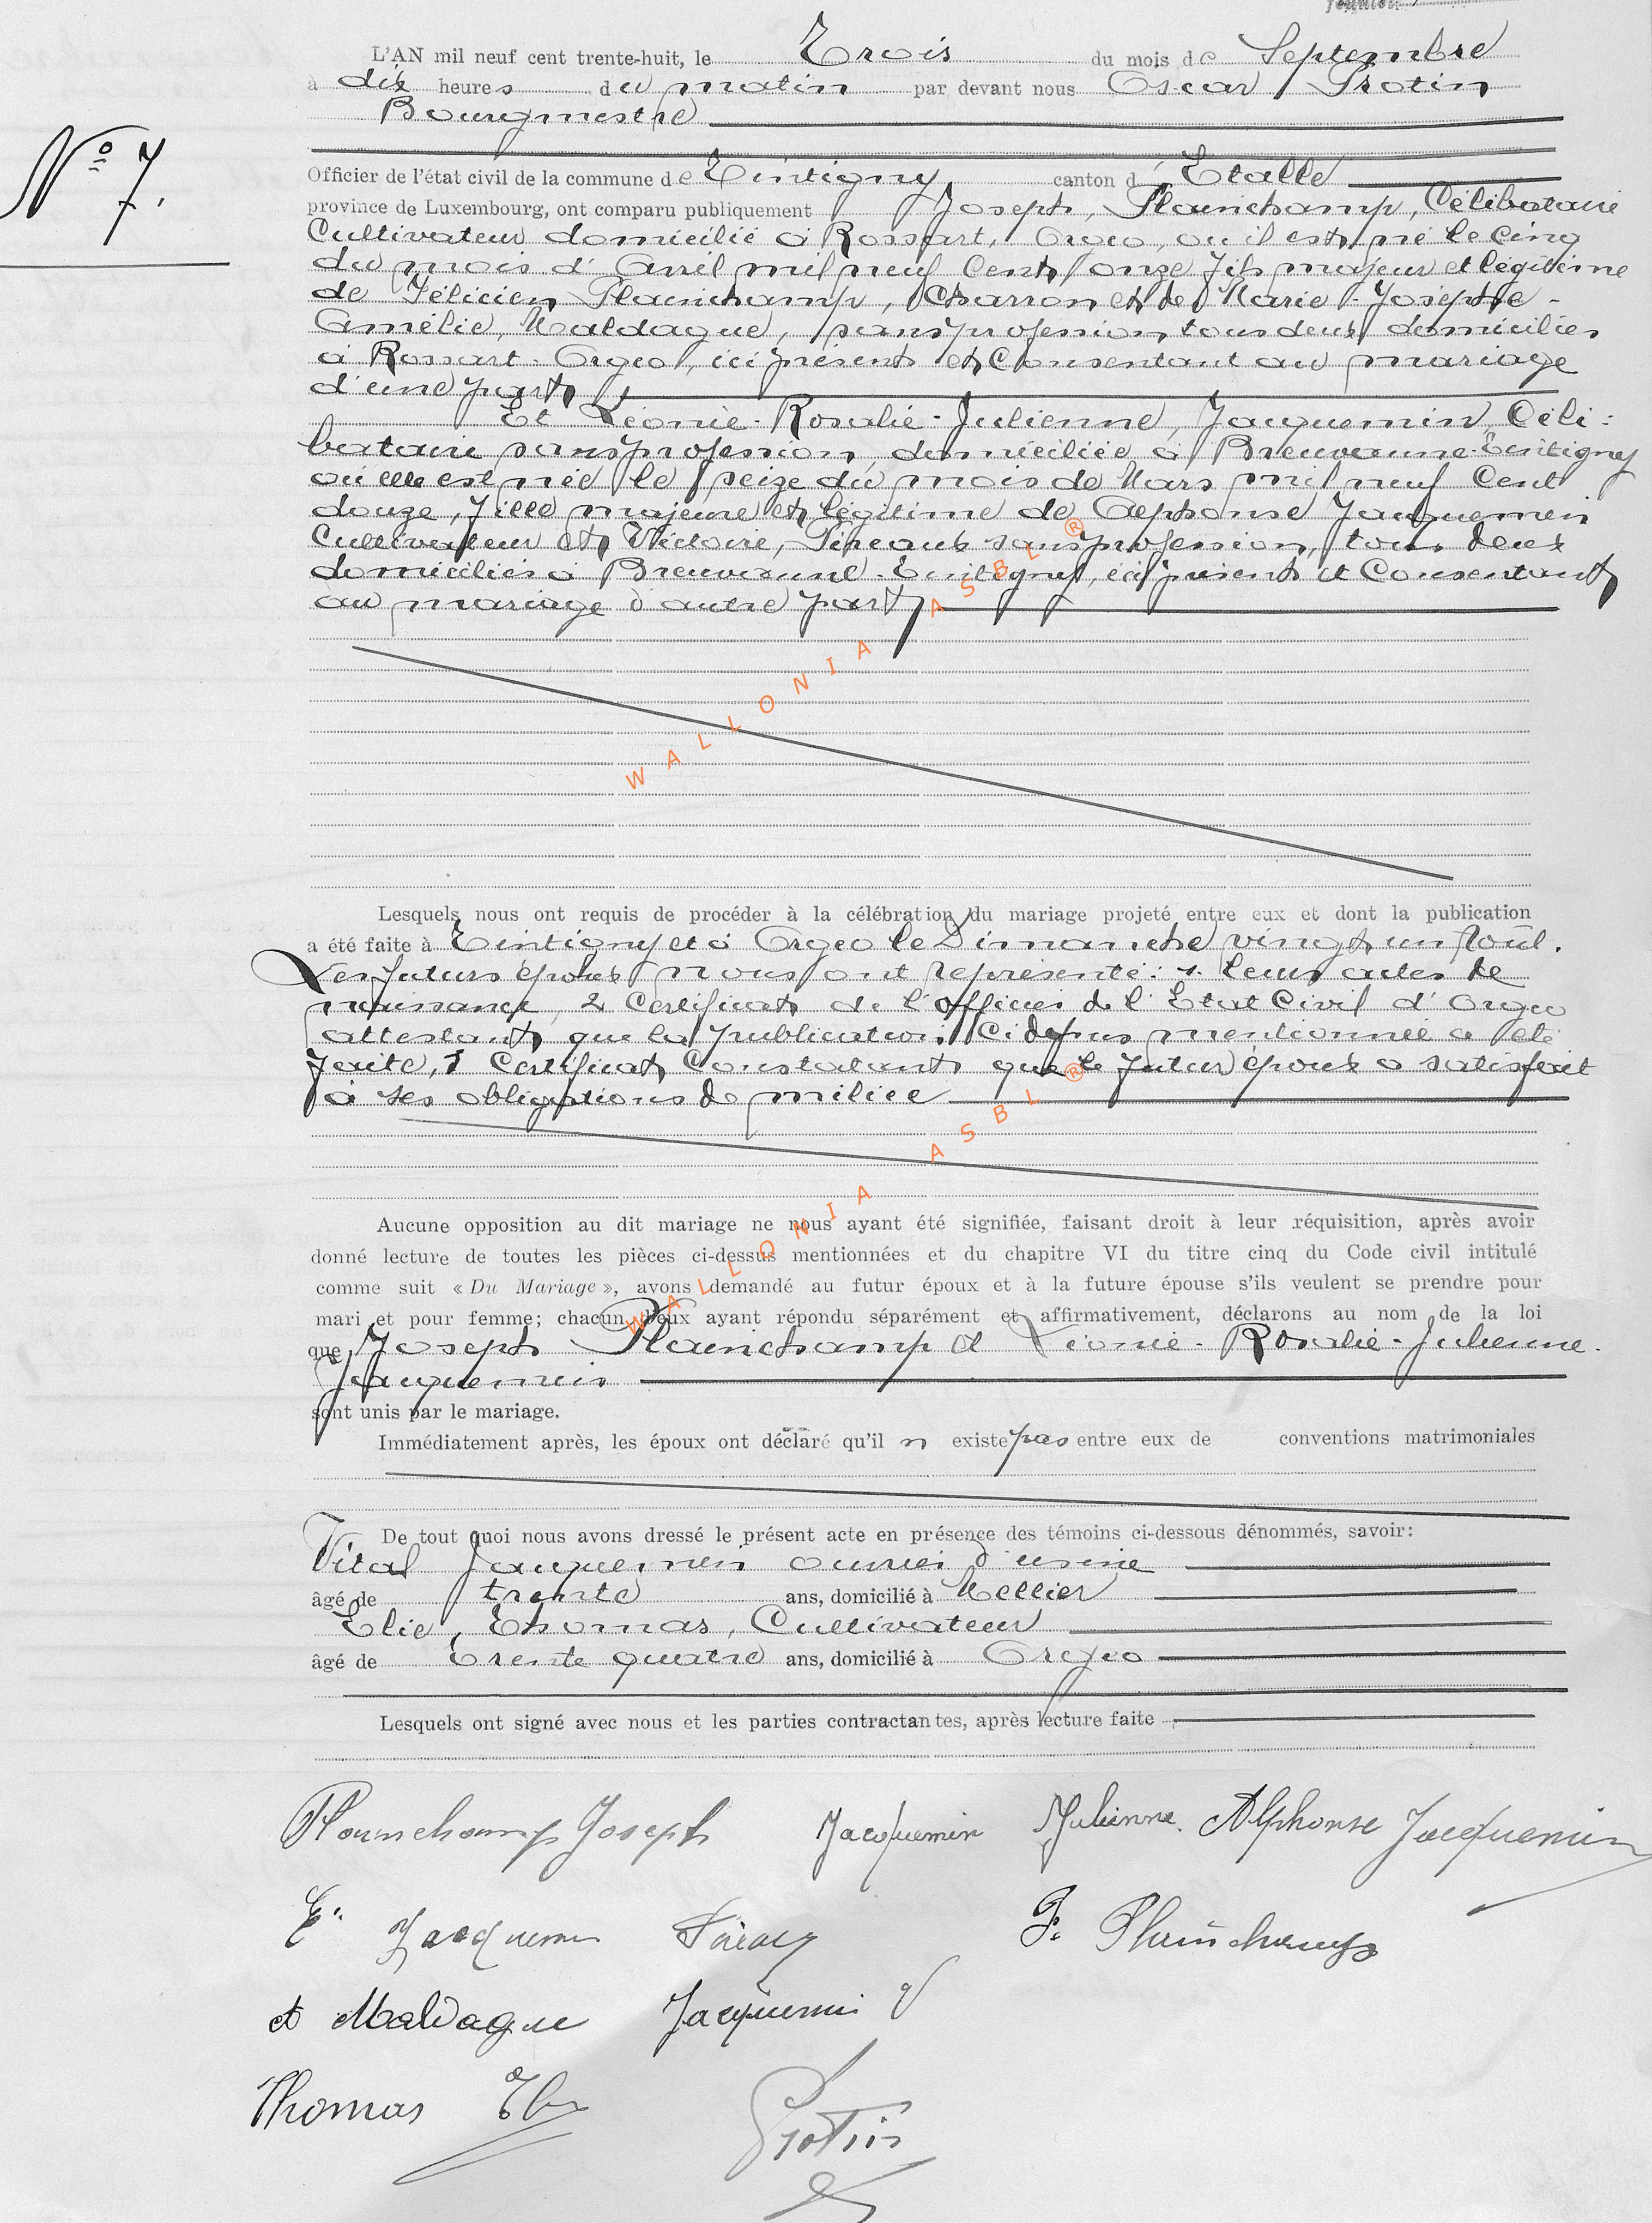 L'AN mil neuf cent trente-huit, le Trois du mois de Septembre
à dix heures du matin par devant nous Oscar Protin
Bourgmestre
N° 7.
Officier de l'état civil de la commune de Tintigny canton d'Etalle
province de Luxembourg, ont comparu publiquement Joseph, Plainchamp, Célibataire
Cultivateur domicilié à Rossart, Orgeo, où il est né le Cinq
du mois d'Avril mil neuf Cent onze fils majeur et légitime
de Félicien Plainchamp, Charron et de Marie-Josèphe-
Amélie, Maldague, sans profession tous deux domiciliés
à Rossart-Orgeo, ici présents et Consentant au mariage
d'une part
Et Léonie-Rosalie-Julienne, Jacquemin, Céli-
bataire sans profession, domiciliée à Breuvanne-Tintigny
où elle est née le seize du mois de Mars mil neuf Cent
douze, fille majeure et légitime de Alphonse Jacquemin
Cultivateur et Victoire, sans profession, tous deux
domiciliés à Breuvanne-Tintigny, ici présents et Consentants
au mariage d'autre part
WALLONIA ASBL ®
Lesquels nous ont requis de procéder à la célébration du mariage projeté entre eux et dont la publication
a été faite à Tintigny et à Orgeo le Dimanche vingt un Août.
Les futurs époux nous ont représenté: 1. leurs actes de
naissance, 2 Certificats de l'officier de l'Etat Civil d'Orgeo
attestant que la publication Ci dessus mentionnée a été
faite, 1 Certificat Constatant que le futur époux a satisfait
à ses obligations de milice
WALLONIA ASBL ®
Aucune opposition au dit mariage ne nous ayant été signifiée, faisant droit à leur réquisition, après avoir
donné lecture de toutes les pièces ci-dessus mentionnées et du chapitre VI du titre cinq du Code civil intitulé
comme suit « Du Mariage », avons demandé au futur époux et à la future épouse s'ils veulent se prendre pour
mari et pour femme; chacun d'eux ayant répondu séparément et affirmativement, déclarons au nom de la loi
que Joseph Plainchamp et Léonie-Rosalie-Julienne.
Jacquemin
sont unis par le mariage.
Immédiatement après, les époux ont déclaré qu'il n existe pas entre eux de conventions matrimoniales
De tout quoi nous avons dressé le présent acte en présence des témoins ci-dessous dénommés, savoir:
Vital Jacquemin ouvrier d'usine
âgé de trente ans, domicilié à Mellier
Elie, Thomas, Cultivateur
âgé de Trente quatre ans, domicilié à Orgeo
Lesquels ont signé avec nous et les parties contractantes, après lecture faite
Plainchamp Joseph Jacquemin Julienne. Alphonse Jacquemin
Jacquemin F. Plainchamp
A Maldague Jacquemin V
Thomas Elie Protin